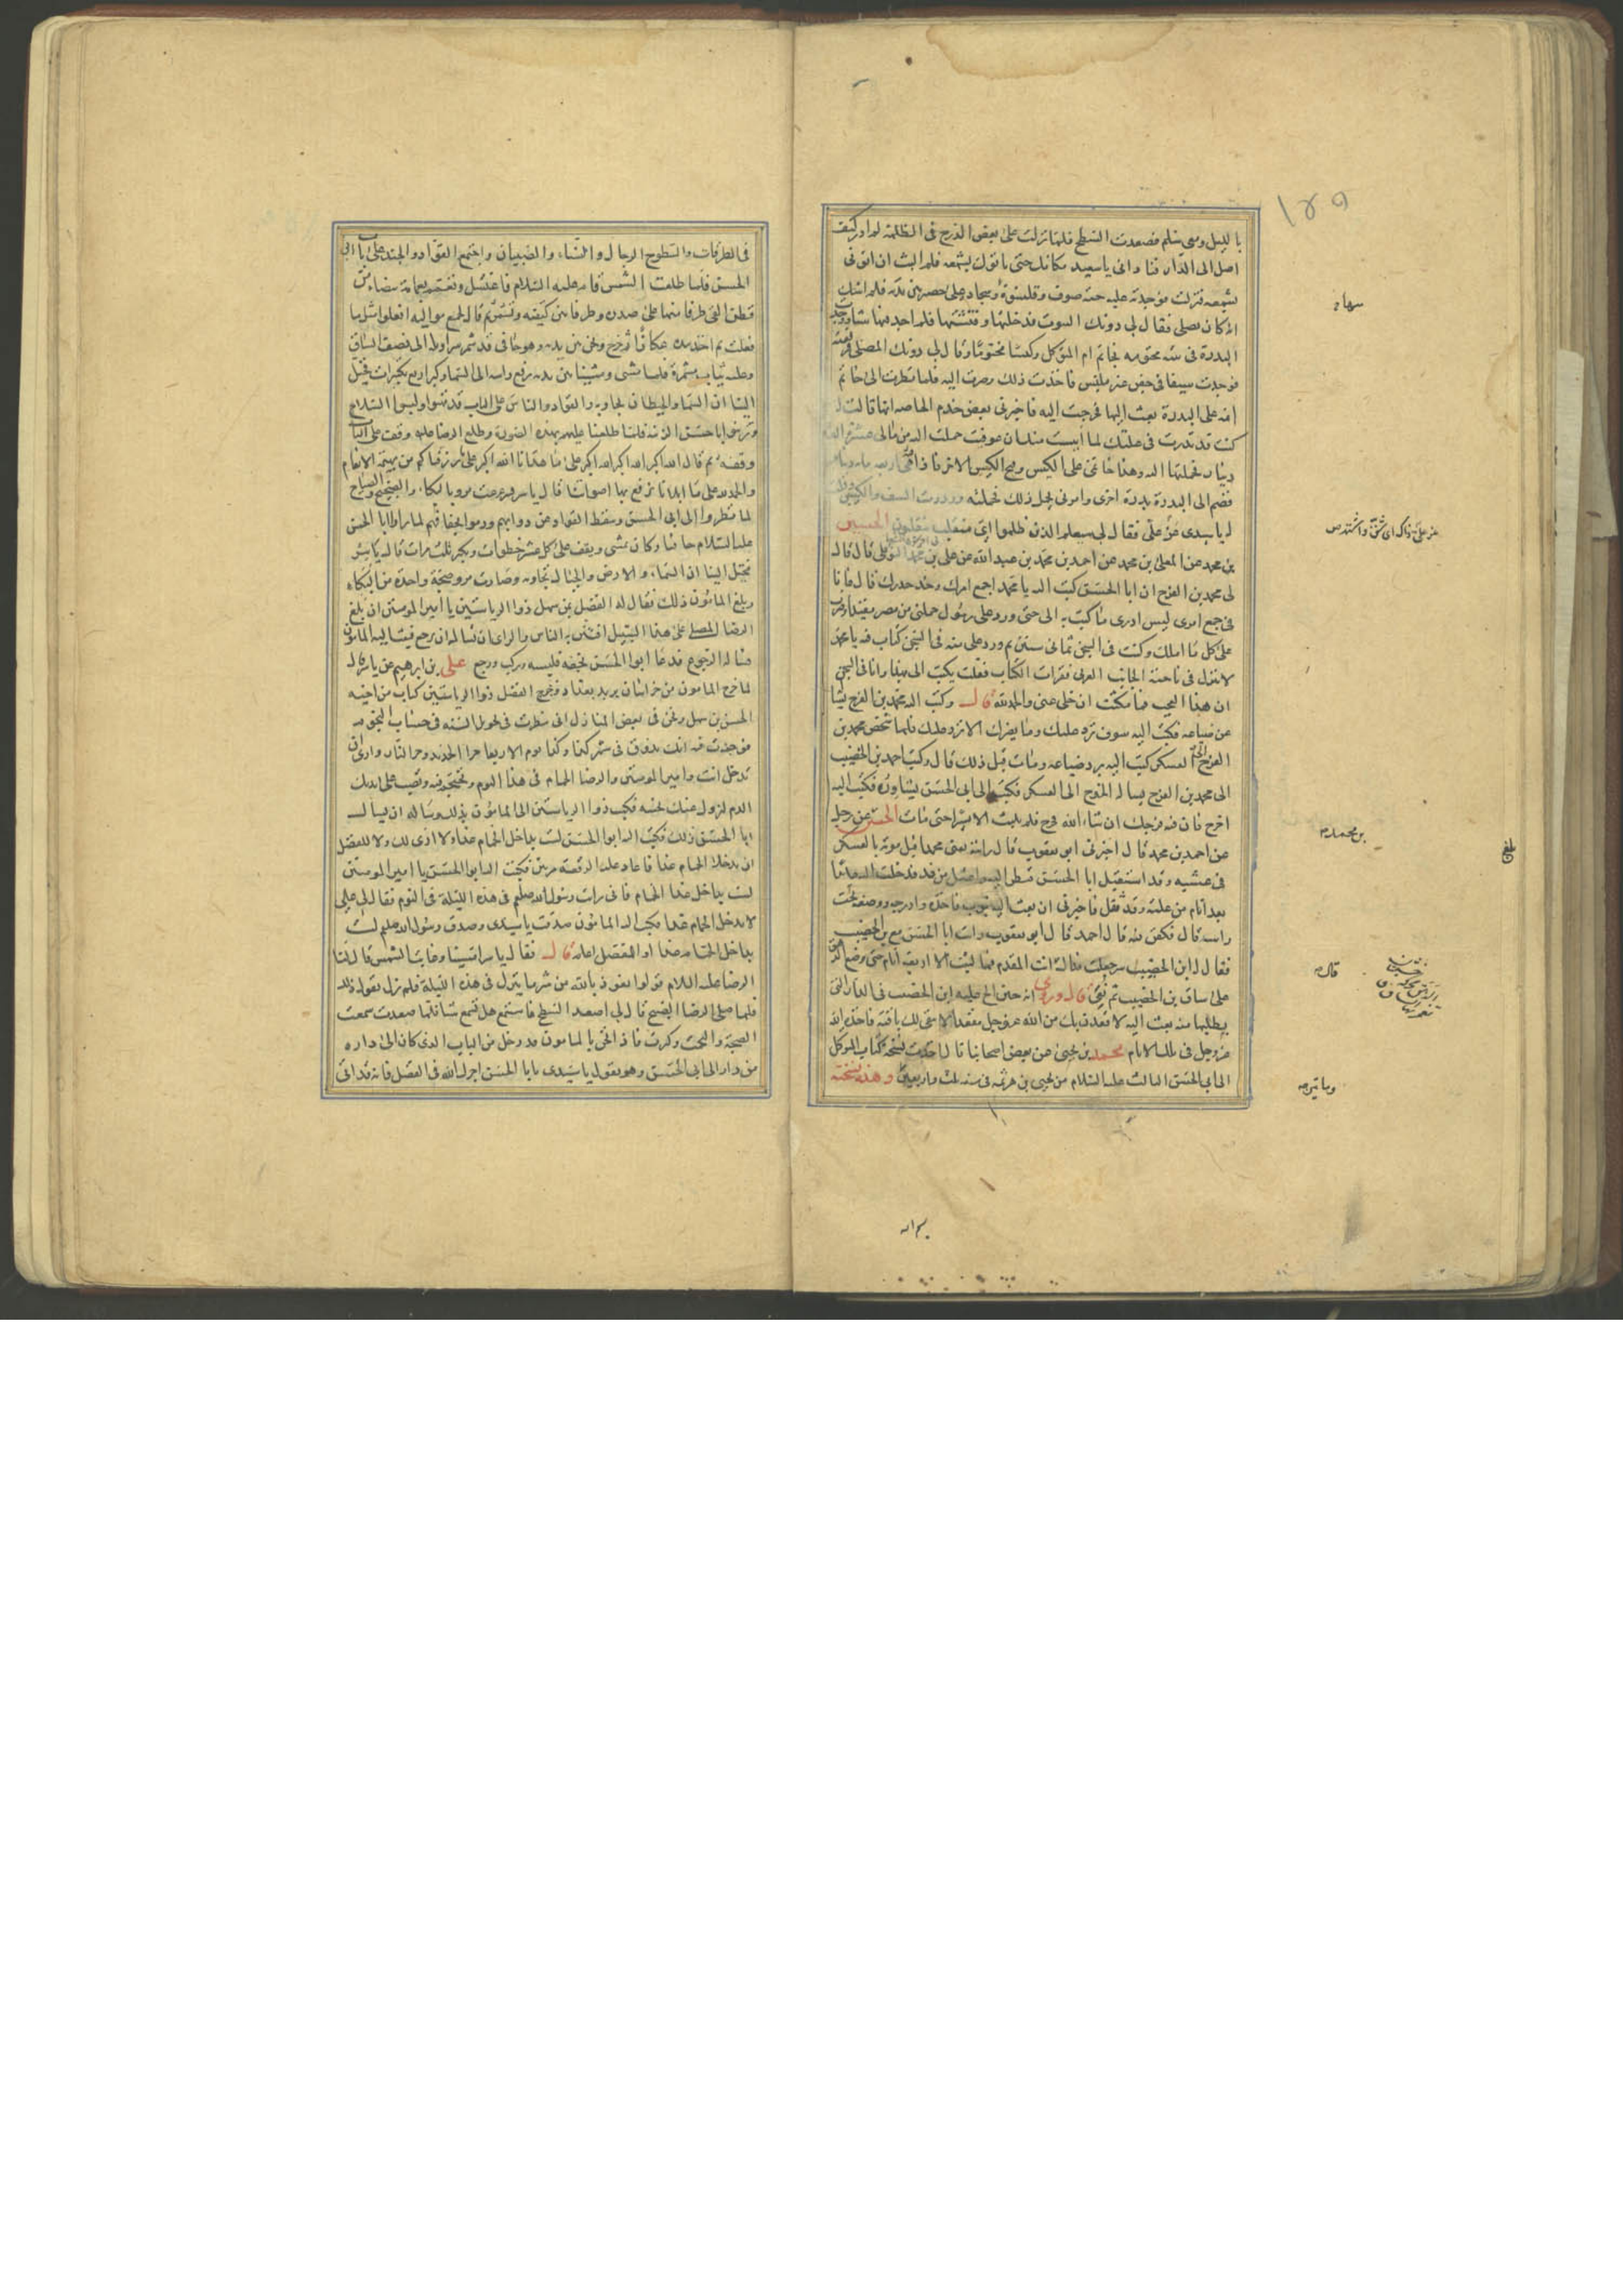 ١٤٩
بالليل ومعي سلم فصعدت السطح فلما نزلت على بعض الدرج في الظلمة لم ادر كيف
اصل الى الدار فناداني يا سعيد مكانك حتى ياتوك بشمعه فلم البث ان اتوني
بشمعه فنزلت فوجدته عليه جبه صوف وقلنسوة وسجاده على حصير بين يديه فلم اشك
انه كان يصلي فقال لي دونك البيوت فدخلتها وفتشتها فلم اجد فيها شيئا ووجدت
البدرة في بيته مختومه بخاتم ام المتوكل وكيسا مختوما وقال لي دونك المصلى فرفعته
فوجدت سيفا في جفن غير ملبس فاخذت ذلك وصرت اليه فلما نظر الى خاتم
امه على البدرة بعث اليها فخرجت اليه فاخبرني بعض خدم الخاصه انها قالت له
كنت قد نذرت في علتك لما ايست منك ان عوفيت حملت اليه من مالي عشرة الف
دينار فحملتها اليه وهذا خاتمي على الكيس وفتح الكيس الاخر فاذا فيه اربعمايه دينار
فضم الى البدرة بدرة اخرى وامرني بحمل ذلك فحملته ورددت السيف والكيسين وقلت
له يا سيدي عز علي فقال لي سيعلم الذين ظلموا اي منقلب ينقلبون الحسين
بن محمد عن المعلى بن محمد عن احمد بن محمد بن عبد الله عن علي بن محمد النوفلي قال قال
لي محمد بن الفرج ان ابا الحسن كتب اليه يا محمد اجمع امرك وخذ حذرك قال فانا
في جمع امري ليس ادري ما كتب به الي حتى ورد علي رسول حملني من مصر مقيدا وضرب
على كل ما املك وكنت في السجن ثماني سنين ثم ورد علي منه في السجن كتاب فيه يا محمد
لا تنزل في ناحية الجانب الغربي فقرات الكتاب فقلت يكتب الي بهذا وانا في السجن
ان هذا العجب فما مكثت ان خلي عني والحمد لله قال وكتب اليه محمد بن الفرج يساله
عن ضياعه فكتب اليه سوف ترد عليك وما يضرك الا ترد عليك فلما شخص محمد بن
الفرج الى العسكر كتب اليه برد ضياعه ومات قبل ذلك قال وكتب احمد بن الخضيب
الى محمد بن الفرج يساله الخروج الى العسكر فكتب الى ابي الحسن يشاوره فكتب اليه
اخرج فان فيه فرجك ان شاء الله فخرج فلم يلبث الا يسيرا حتى مات الحسين عن رجل
عن احمد بن محمد قال اخبرني ابو يعقوب قال رايته يعني محمدا قبل موته بالعسكر
في عشيه وقد استقبل ابا الحسن فنظر اليه واعتل من غد فدخلت اليه عائدا
بعد ايام من علته وقد ثقل فاخبرني ان بعث اليه بثوب فاخذه وادرجه ووضعه تحت
راسه قال فكفن فيه قال احمد قال ابو يعقوب رايت ابا الحسن مع بن الخضيب
فقال له ابن الخضيب سر جعلت فداك فقال له انت المقدم فما لبث الا اربعة ايام حتى وضع الدهق
على ساق بن الخضيب ثم نعي قال وروي انه حين الح عليه ابن الخضيب في الدار التي
يطلبها منه بعث اليه لاقعدن بك من الله عز وجل مقعدا لا يبقى لك باقية فاخذه الله
عز وجل في تلك الايام محمد بن يحيى عن بعض اصحابنا قال اخذت نسخة كتاب المتوكل
الى ابي الحسن الثالث عليه السلام من يحيى بن هرثمه في سنة ثلث واربعين وهذه نسخته
بن محمد
قال
ومايتين
بلغ
في الطرقات والسطوح الرجال والنساء والصبيان واجتمع القواد والجند على باب ابي
الحسن فلما طلعت الشمس قام عليه السلام فاغتسل وتعمم بعمامة بيضاء من
قطن القى طرفا منها على صدره وطرفا بين كتفيه وتشمر ثم قال لجميع مواليه افعلوا مثل ما
فعلت ثم اخذ بيده عكازا ثم خرج ونحن بين يديه وهو حافي قد شمر سراويله الى نصف الساق
وعليه ثياب مشمرة فلما مشى ومشينا بين يديه رفع راسه الى السماء وكبر اربع تكبيرات فخيل
الينا ان السماء والحيطان تجاوبه والقواد والناس على الباب قد تهيوا ولبسوا السلاح
وتزينوا باحسن الزينة فلما طلعنا عليهم بهذه الصورة وطلع الرضا عليه وقف على الباب
وقفة ثم قال الله اكبر الله اكبر الله اكبر على ما هدانا الله اكبر على ما رزقنا من بهيمة الانعام
والحمد لله على ما ابلانا نرفع بها اصواتنا قال ياسر فتزعزعت مرو بالبكاء والضجيج والصياح
لما نظروا الى ابي الحسن وسقط القواد عن دوابهم ورموا بخفافهم لما راوا ابا الحسن
عليه السلام حافيا وكان يمشي ويقف على كل عشر خطوات ويكبر ثلث مرات قال ياسر
فتخيل الينا ان السماء والارض والجبال تجاوبه وصارت مرو ضجة واحدة من البكاء
وبلغ المامون ذلك فقال له الفضل بن سهل ذو الرياستين يا امير المومنين ان بلغ
الرضا المصلى على هذا السبيل افتتن به الناس والراي ان تساله ان يرجع فبعث اليه المامون
فساله الرجوع فدعا ابو الحسن بخفه فلبسه وركب ورجع علي بن ابراهيم عن ياسر قال
لما خرج المامون من خراسان يريد بغداد وخرج الفضل ذو الرياستين كتاب من اخيه
الحسن بن سهل ونحن في بعض المنازل اني نظرت في تحويل السنة في حساب النجوم
فوجدت فيه انك تذوق في شهر كذا وكذا يوم الاربعا حر الحديد وحر النار وارى ان
تدخل انت وامير المومنين والرضا الحمام في هذا اليوم وتحتجم فيه وتصب على يديك
الدم ليزول عنك نحسه فكتب ذو الرياستين الى المامون بذلك وساله ان يسال
ابا الحسن ذلك فكتب اليه ابو الحسن لست بداخل الحمام غدا ولا ارى لك ولا للفضل
ان تدخلا الحمام غدا فاعاد عليه الرقعة مرتين فكتب اليه ابو الحسن يا امير المومنين
لست بداخل غدا الحمام فاني رايت رسول الله صلعم في هذه الليلة في النوم فقال لي يا علي
لا تدخل الحمام غدا فكتب اليه المامون صدقت يا سيدي وصدق رسول الله صلعم لست
بداخل الحمام غدا والفضل اعلم قال فقال ياسر امسينا وغابت الشمس قال لنا
الرضا عليه السلام قولوا نعوذ بالله من شر ما ينزل في هذه الليلة فلم نزل نقول ذلك
فلما صلى الرضا الصبح قال لي اصعد السطح فاستمع هل تسمع شيئا فلما صعدت سمعت
الضجة والتحمت وكثرت فاذا نحن بالمامون قد دخل من الباب الذي كان الى داره
من دار ابي الحسن وهو يقول يا سيدي يا ابا الحسن اجرك الله في الفضل فانه قد ابى